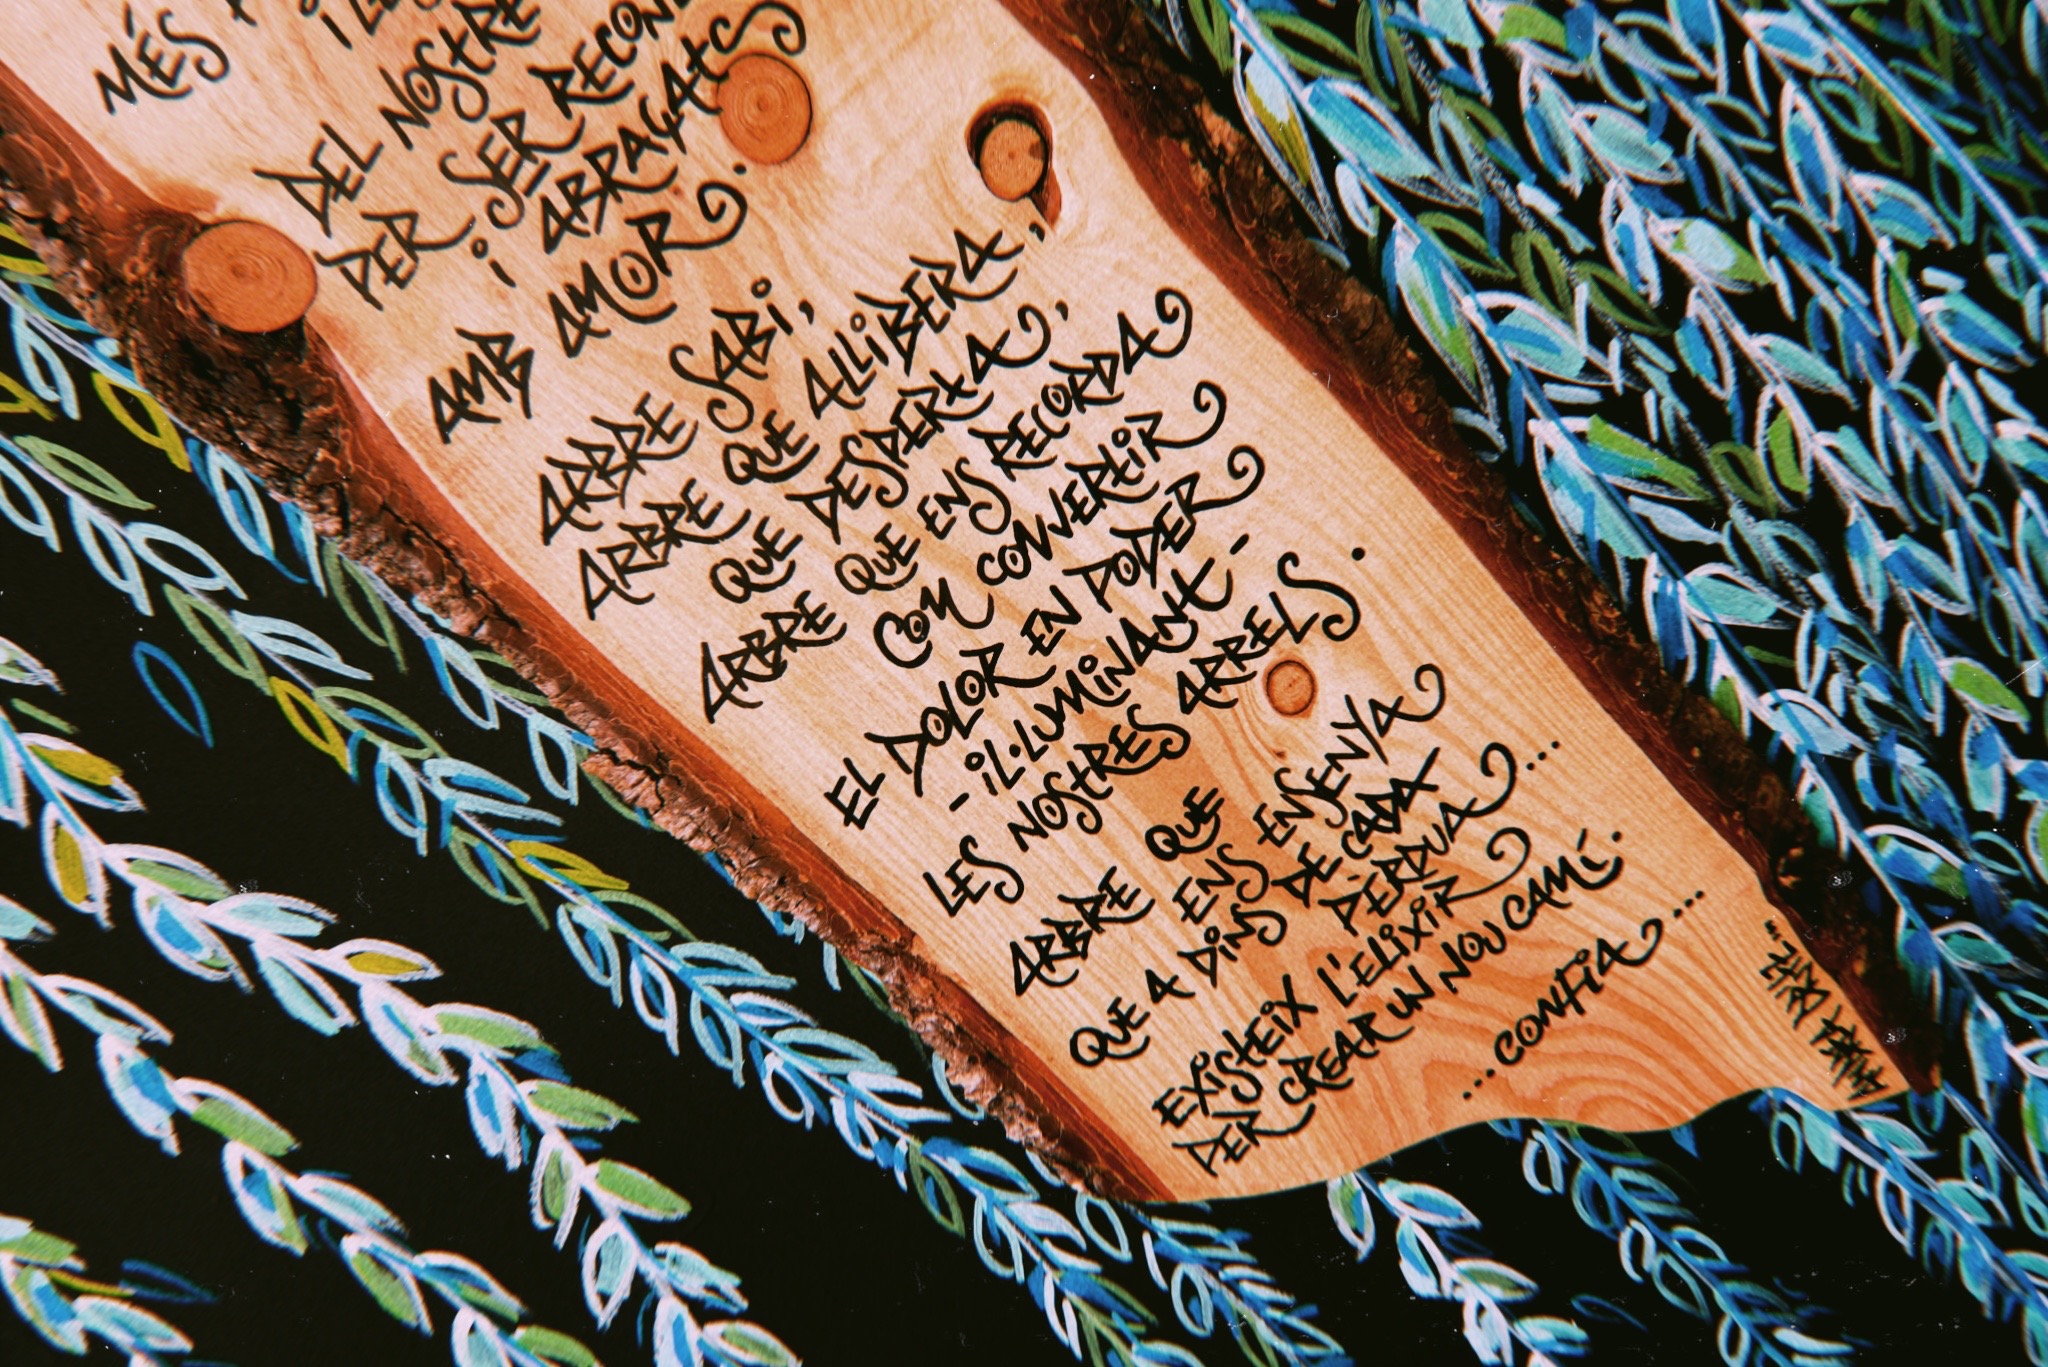 MÉS
DEL NOSTRE
PER SER
I ABRAÇATS
AMB AMOR.
ARBRE SABI,
ARBRE QUE ALLIBERA,
QUE DESPERTA,
ARBRE QUE ENS RECORDA
COM CONVERTIR
EL DOLOR EN PODER
- IL·LUMINANT -
LES NOSTRES ARRELS.
ARBRE QUE
ENS ENSENYA
QUE A DINS DE CADA
PÈRDUA...
EXISTEIX L'ELIXIR
PER CREAR UN NOU CAMÍ.
...CONFIA...